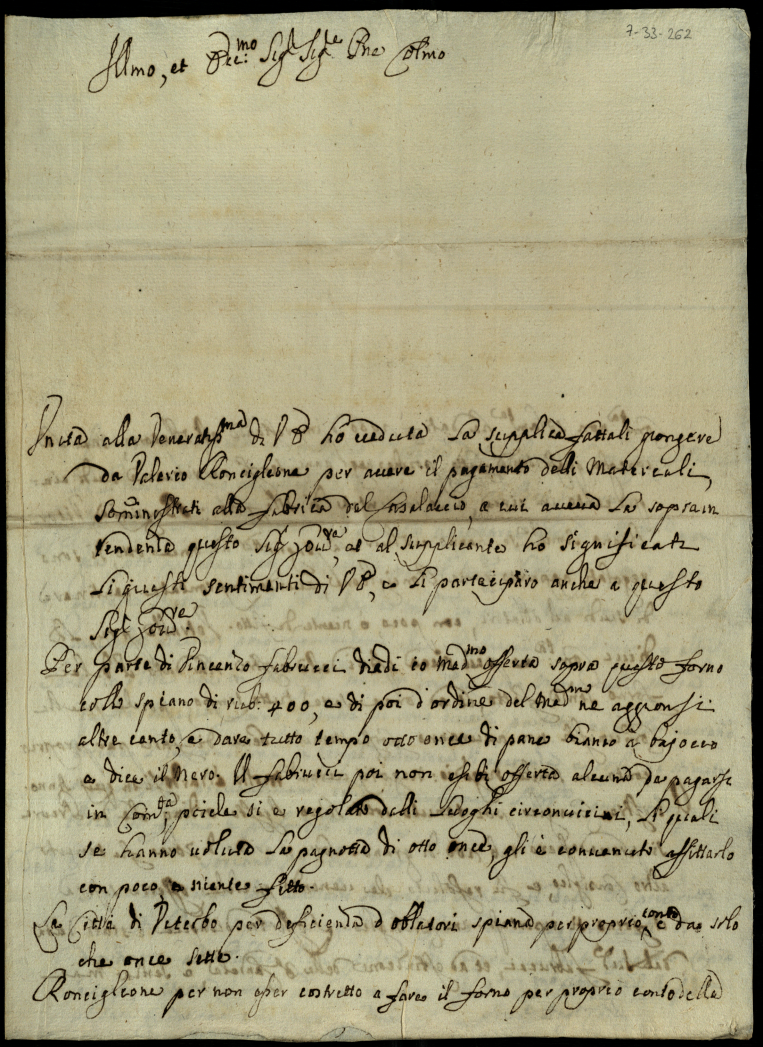 7-33-262
Illmo, et Rec:mo Sigr Sigre Pne Colmo
Unita alla Veneratma di VS ho veduta la supplica fattali porgere
da Valerio Ronciglione per avere il pagamento delli Materiali
somministrati alla fabrica del, a cui aveva la soprain
tendenza questo Sigr Govre, et al supplicante ho significati
li questi sentimenti di VS, e li parteciparo anche a questo
Sigr Govre.
Per parte di Vincenzo Fabrucci diedi io Medmo offerta sopra questo forno
colla spiano di rub: 400, e di poi d'ordine del Medmo ne aggionsi
altre cento, e dare tutto tempo otto once di pane bianco à bajocco
e dieci il nero. Il Fabrucci poi non esibi offerta alcuna da pagarsi
in Comtà, poiche si è regolato dalli luoghi circonvicini, li quali
se hanno voluta la pagnotta di otto once, gli è convenuto affittarlo
con poco, e niente fitto.
La Città di Viterbo per deficienza d'oblatori spiana per proprio conto e da solo
che once sette.
Ronciglione per non esser costretto a fare il forno per proprio conto della